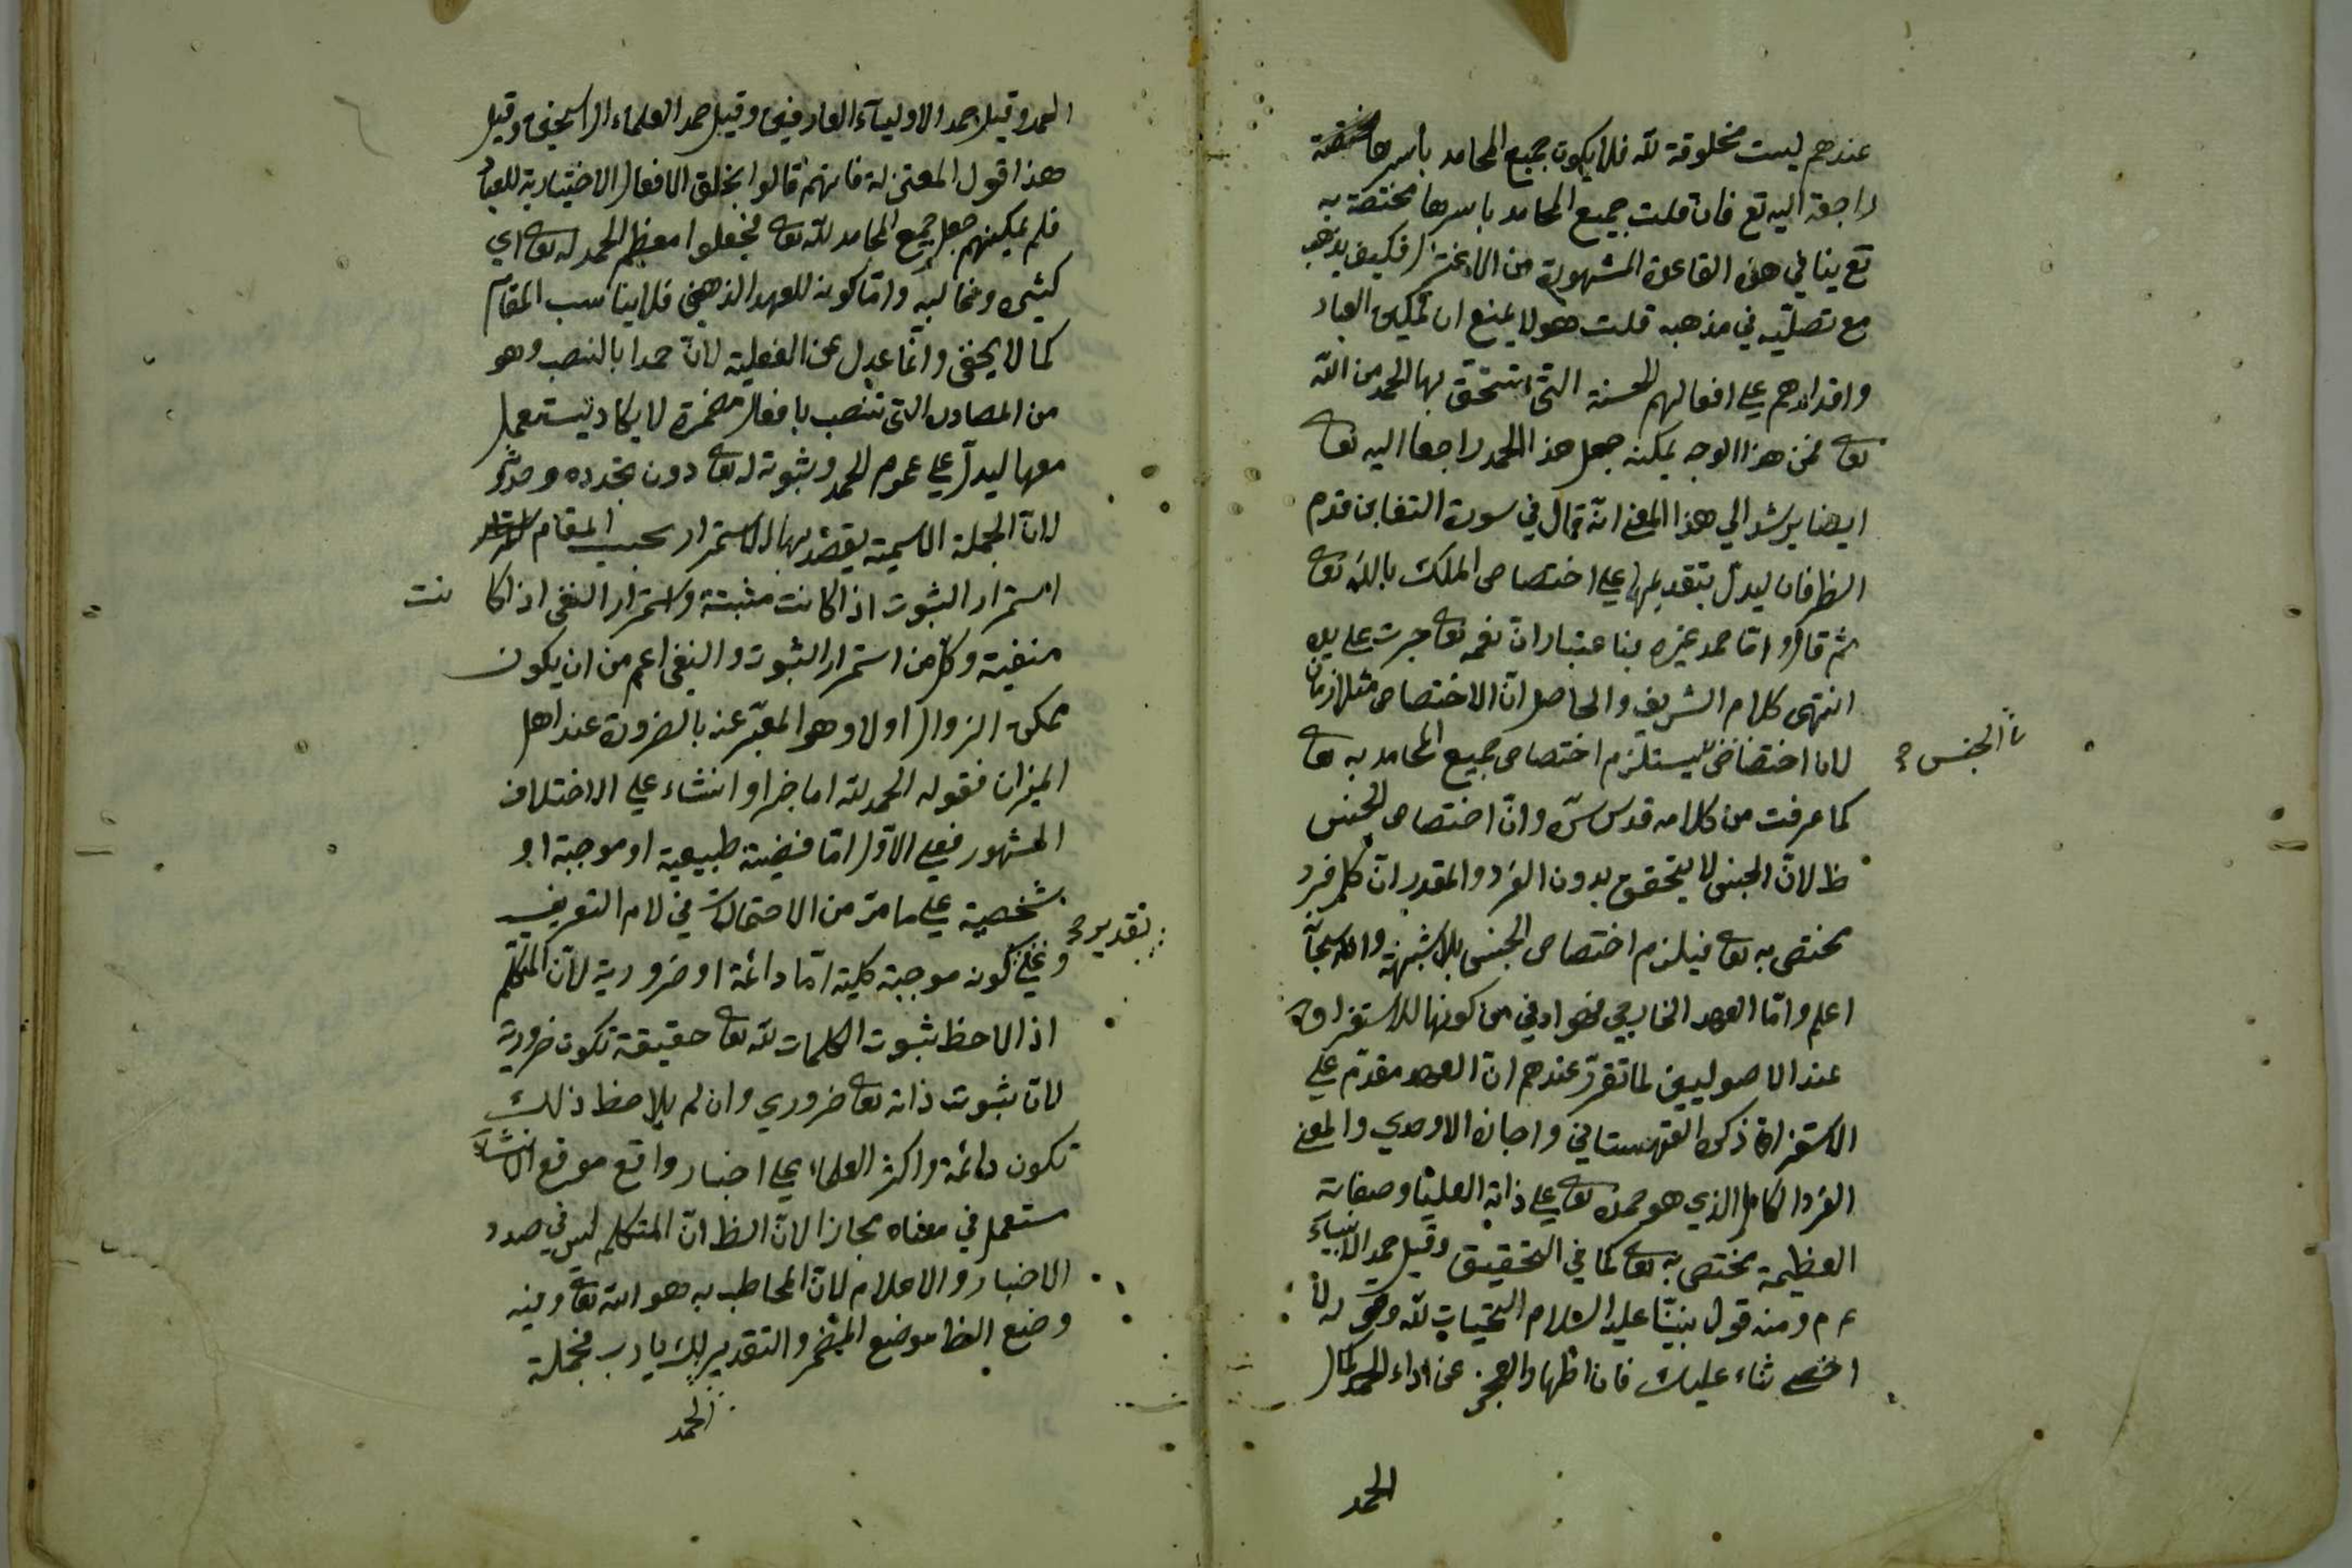 عندهم ليست مخلوقة لله فلا يكون جميع المحامد باسرها مختصة
راجعة اليه تع فان قلت جميع المحامد باسرها مختصة به
تع ينافي هذه القاعدة المشهورة من الاعتزال فكيف يذهب
مع تصلبه في مذهبه قلت هو لا يمنع ان تمكين العباد
واقدارهم علي افعالهم الحسنة التي يستحق بها الحمد من الله
تعا فمن هذا الوجه يمكنه جعل هذا الحمد راجعا اليه تعا
ايضا يرشد الي هذا المعني انه قال في سورة التغابن قدم
الظرفان ليدل بتقديمهما علي اختصاص الملك بالله تعا
ثم قال واما حمد غيره فباعتبار ان نعمه تعا جرت علي يده
انتهى كلام الشريف والحاصل ان الاختصاص متلازمان
الجنس
لان اختصاص يستلزم اختصاص جميع المحامد به تعا
كما عرفت من كلامه قدس سره وان اختصاص الجنس
ظ لان الجنس لا يتحقق بدون الفرد والمقدر ان كل فرد
مختص به تعا فيلزم اختصاص الجنس بلا شبهة والله سبحانه
اعلم واما العهد الخارجي فهو اولي من كونها للاستغراق
عند الاصوليين لما تقرر عندهم ان العهد مقدم علي
الاستغراق ذكره القهستاني واجازه الاوحدي والمعني
الفرد الكامل الذي هو حمده تعا علي ذاته العليا وصفاته
العظيمة مختص به تعا كما في التحقيق وقيل حمد الانبياء
ع م ومنه قول نبينا عليه السلام التحيات لله وهي لا
احصي ثناء عليك فان اظهار العجز عن اداء الحمد كمال
الحمد
الحمد وقيل حمد الاولياء العارفين وقيل حمد العلماء الراسخين وقيل
هذا قول المعتزلة فانهم قالوا بخلق الافعال الاختيارية للعباد
فلم يمكنهم جعل جميع المحامد لله تعا فجعلوا معظم الحمد له تعا اي
كثيره وغالبه واما كونه للعهد الذهني فلا يناسب المقام
كما لا يخفى وانما عدل عن الفعلية لان حمدا بالنصب وهو
من المصادر التي تنصب بافعال مضمرة لا يكاد يستعمل
معها ليدل علي عموم الحمد وثبوته له تعا دون تجدده وحدوثه
لان الجملة الاسمية يقصد بها الاستمرار بحسب المقام
استمرار الثبوت اذا كانت مثبتة واستمرار النفي اذا كا نت
منفية وكل من استمرار الثبوت والنفي اعم من ان يكون
ممكن الزوال اولا وهو المعبر عنه بالضرورة عند اهل
الميزان فقوله الحمد لله اما خبرا وانشاء علي الاختلاف
المشهور فعلي الاول اما قضية طبيعية او موجبة او
شخصية علي ما مر من الاحتمالات في لام التعريف
تقدير
وعلي كونه موجبة كلية اما دائمة او ضرورية لان المتكلم
اذا لاحظ ثبوت الكلمات لله تعا حقيقة تكون ضرورية
لان ثبوت ذاته تعا ضروري وان لم يلاحظ ذلك
تكون دائمة واكثر العلماء علي اخبار واقع موقع الانشاء
مستعمل في معناه مجازا لان الظ ان المتكلم ليس في صدد
الاخبار والاعلام لان المخاطب به هو الله تعا وفيه
وضع الظا موضع المضمر والتقدير لك يا رب فجملة
الحمد